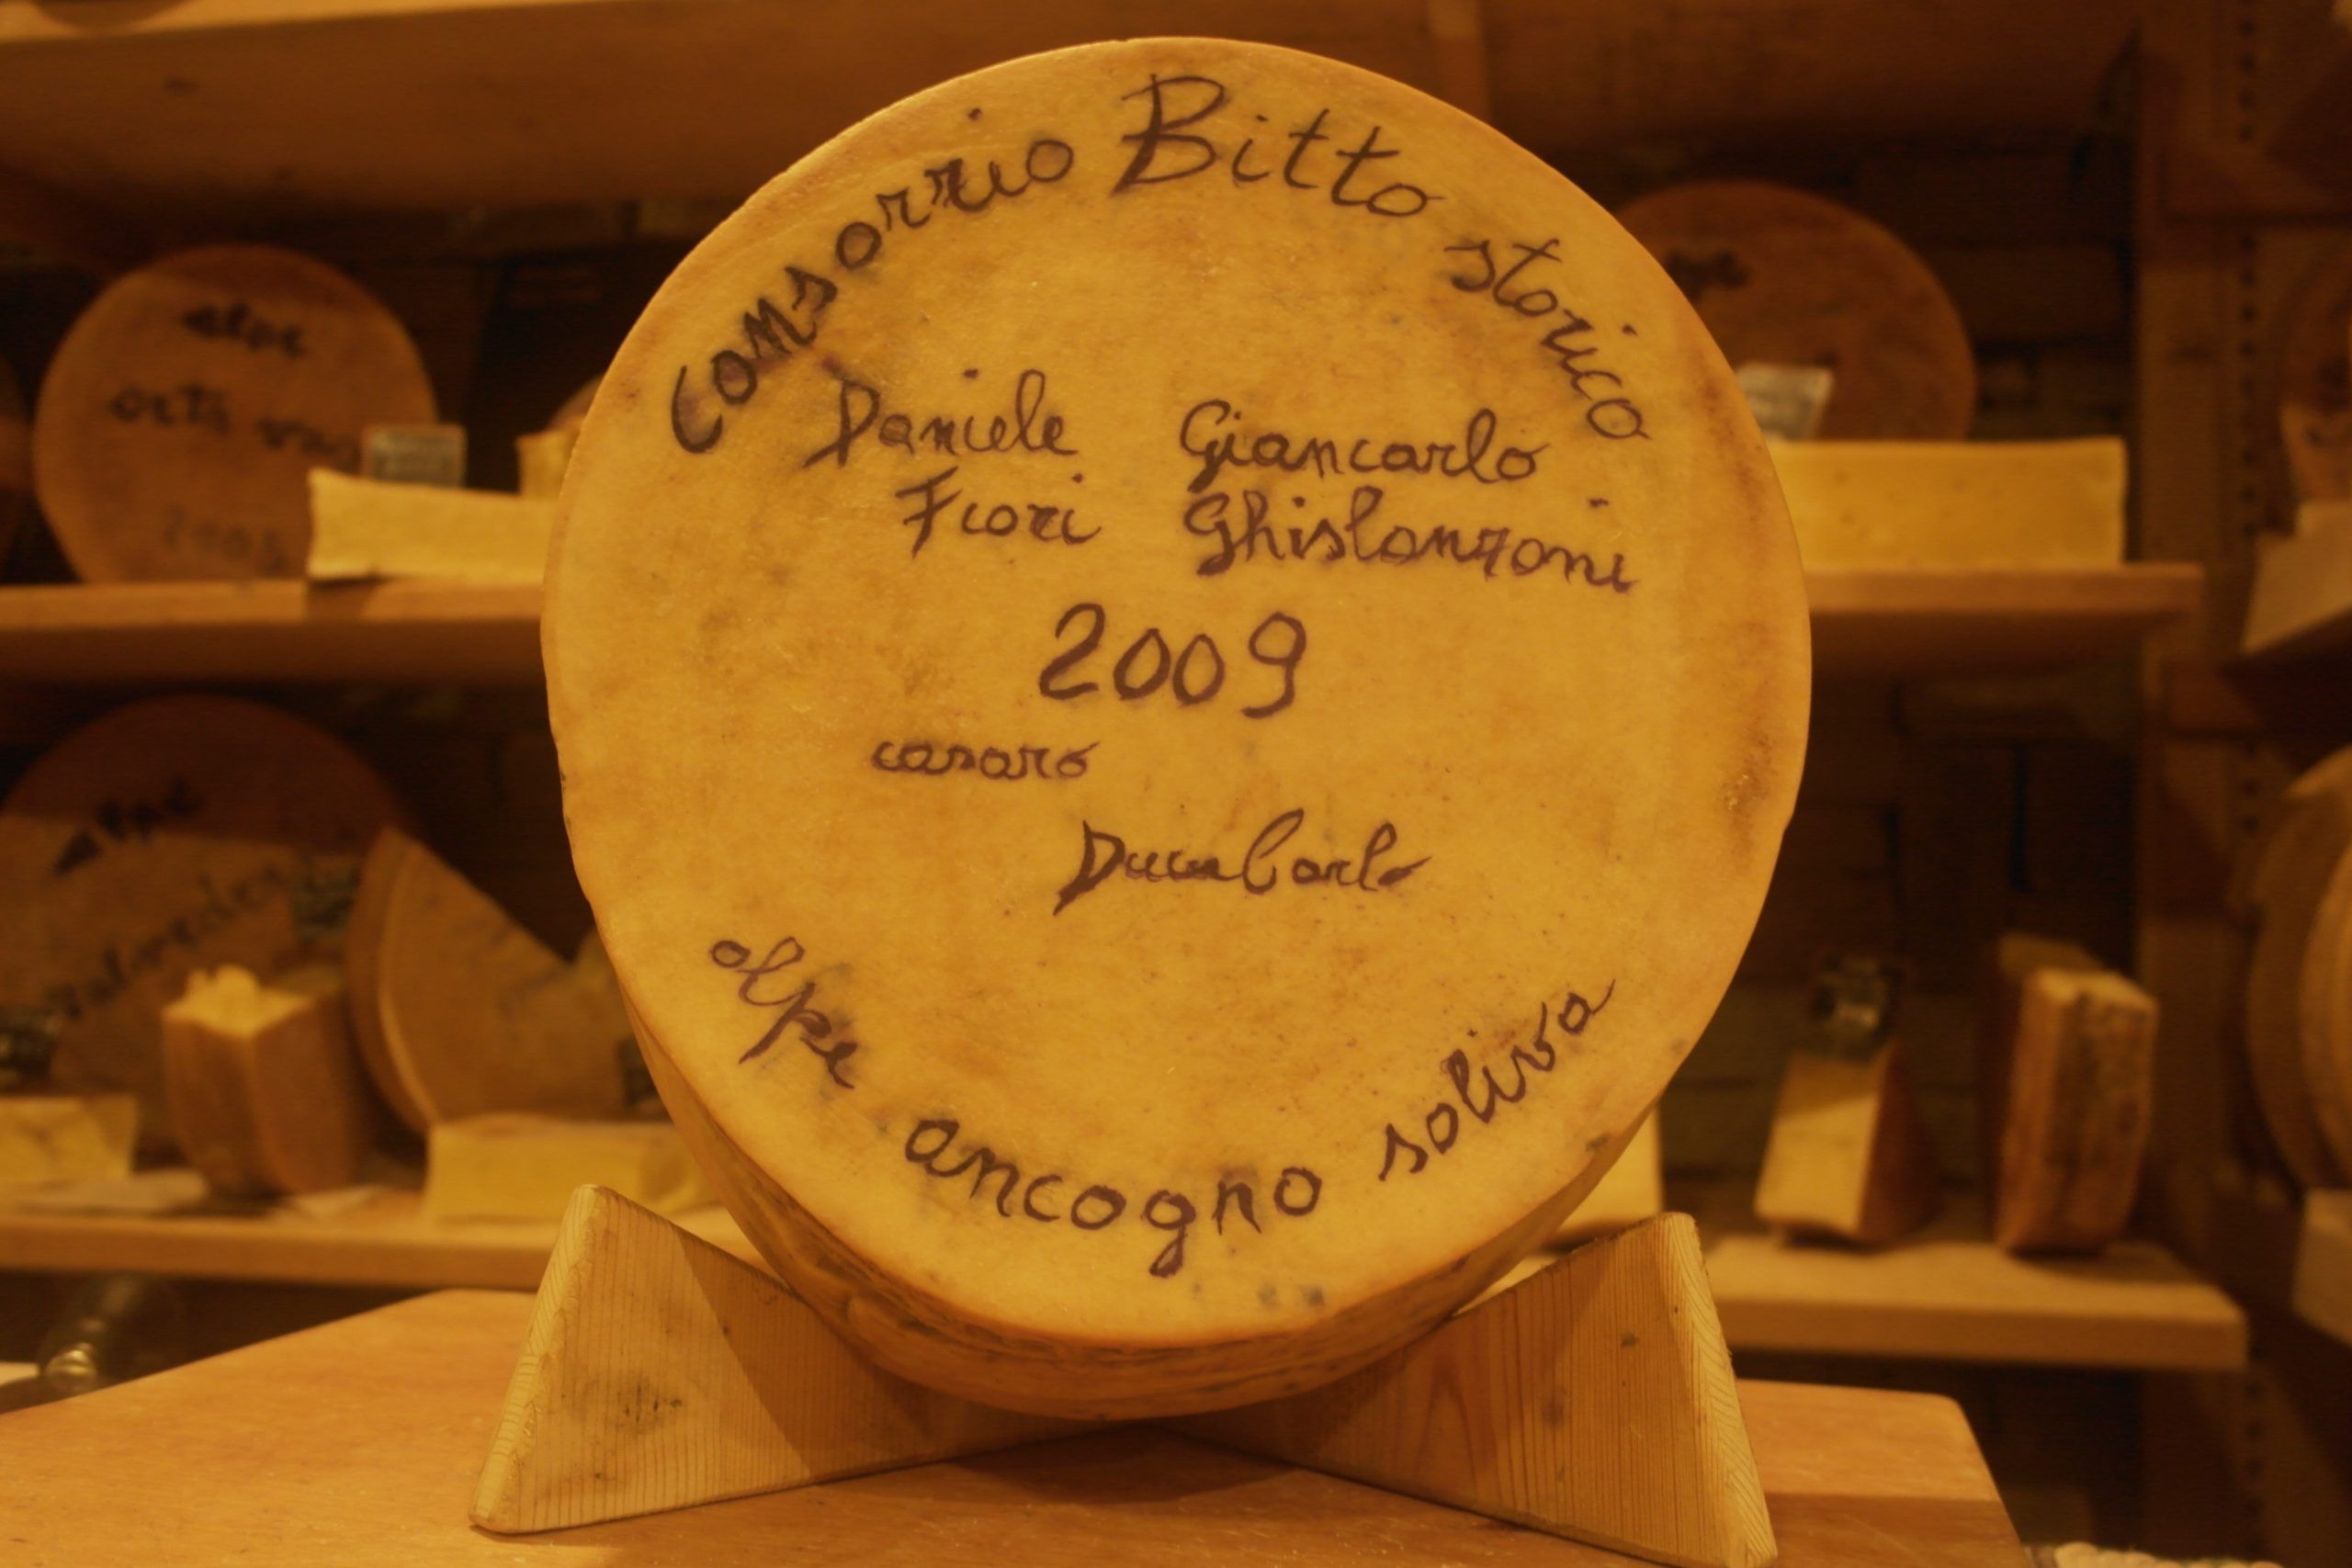 Consorzio Bitto storico
Daniele Giancarlo
Fiori Ghislanzoni
2009
casaro
Duca Carlo
alpe ancogno soliva
alpe
orta
alpe